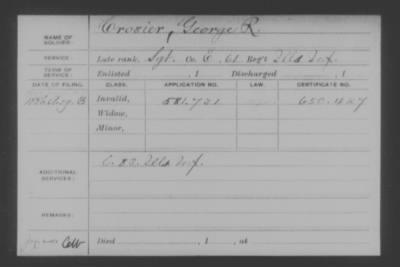 NAME OF SOLDIER: Crozier, George R.
SERVICE: Late rank, Sgt. Co. E, 61 Reg't Ills Inf.
TERM OF SERVICE: Enlisted , 1 Discharged , 1
DATE OF FILING. CLASS. APPLICATION NO. LAW. CERTIFICATE NO.
Aug. Invalid, 581.721 650.427
Widow,
Minor,
ADDITIONAL SERVICES: Ills Inf.
REMARKS:
Died , 1 , at